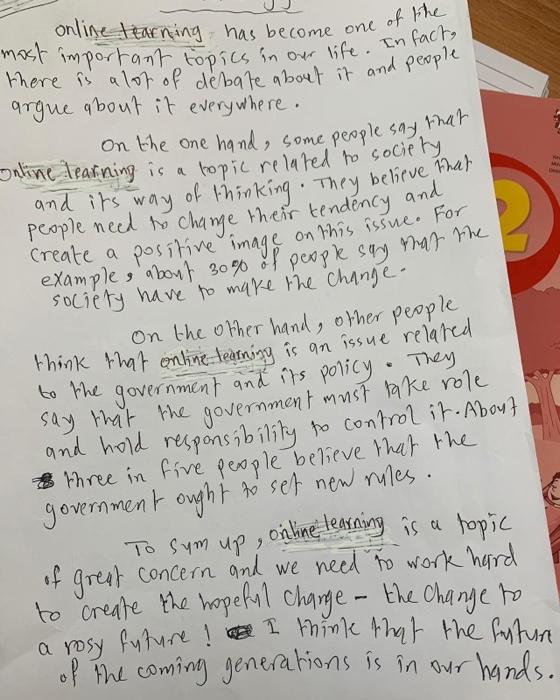 online learning has become one of the
most important topics in our life. In fact,
there is a lot of debate about it and people
argue about it everywhere.
On the one hand, some people say that
online learning is a topic related to society
and its way of thinking. They believe that
people need to change their tendency and
create a positive image on this issue. For
example, about 30% of people say that the
society have to make the change.
On the other hand, other people
think that online learning is an issue related
to the government and its policy. They
say that the government must take role
and hold responsibility to control it. About
three in five people believe that the
government ought to set new rules.
To sum up, online learning is a topic
of great concern and we need to work hard
to create the hopeful change - the change to
a rosy future! I think that the future
of the coming generations is in our hands.
2